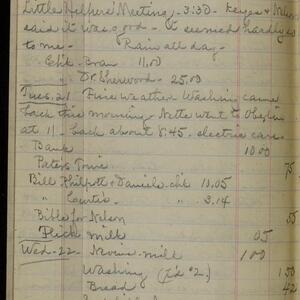 Little Helpers' Meeting - 3:30 - Keyes & Nelson
said it was good - It seemed hardly so
to me - Rain all day -
Chk. Bran 11.00
" Dr. Sherwood - 25.00
Tues. 21 Fine weather Washing came
back this morning - Nette went to Oberlin
at 11 - back about 8:45 - electric cars -
Bank 10 00
Paten 75
Bill Philpott & Daniels chk 10.05
" Curtis " 3.14
Bible for Nelson 55
milk 05
Wed - 22 - milk 1 00
Washing (pd #2.) 1 50
Bread 42